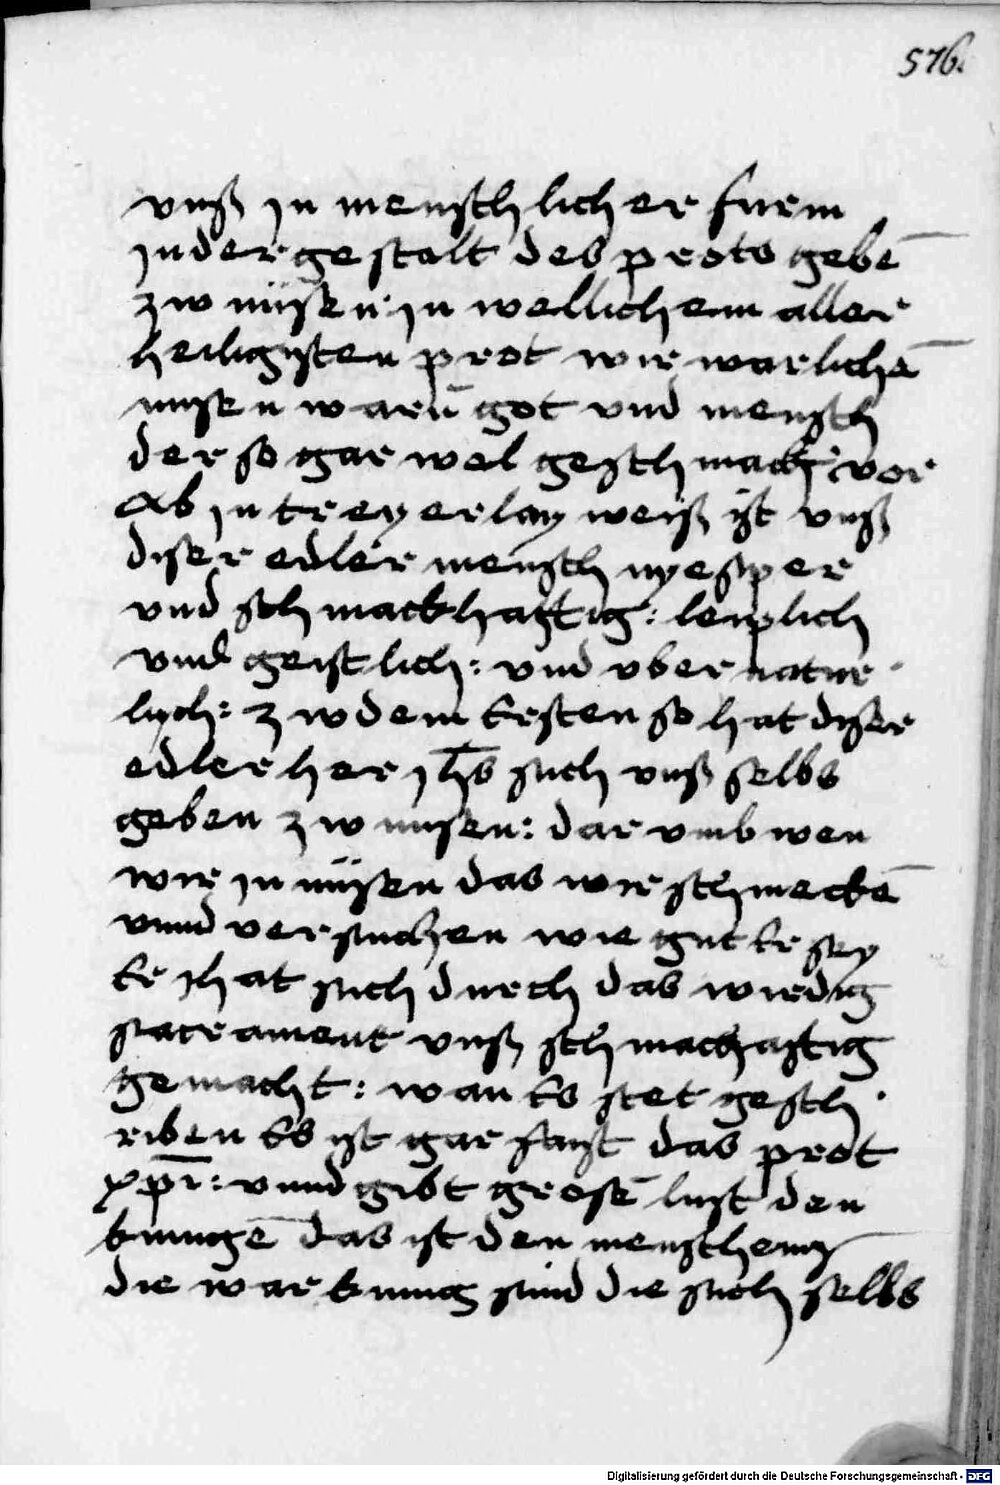 576.
vnß jn menschlicher furm
jn der gestalt des prots gebē
zw nüssen jn wellichem aller
heiligisten prot wir warlichē
nusen warn̄ got vnd mensch
der so gar wol geschmach vor
Ab jn treyerlay weiß ist vnß
diser edler mensch nyesper
vnd schmackhafftig: leiplich
vnd geistlich: vnd vbernatur
lych: zw dem Ersten so hat diser
edler her jhs̄ sich vnß selbs
geben zw nusen: dar vmb wen
wir jn nüssen das wir schmeckē
vnnd versuchen wie gut Er sey
Er hat sich durch das wirdig
sacrament vnß schmachaftig
gemacht: wan Es stet gesch
riben Es ist gar faist das prot
xpī: vnnd gibt grosē lust den
kunigē das ist den menschenn
die war kunig sind die sich selbs
Digitalisierung gefördert durch die Deutsche Forschungsgemeinschaft - DFG